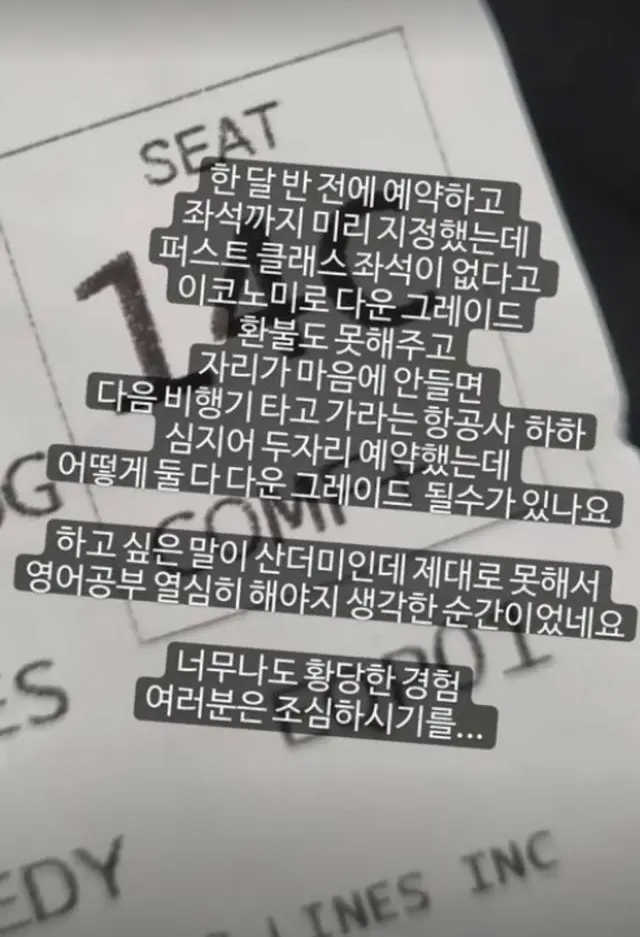 SEAT
한 달 반 전에 예약하고
좌석까지 미리 지정했는데
퍼스트 클래스 좌석이 없다고
이코노미로 다운 그레이드
환불도 못해주고
자리가 마음에 안들면
다음 비행기 타고 가라는 항공사 하하
심지어 두자리 예약했는데
어떻게 둘 다 다운 그레이드 될수가 있나요
하고 싶은 말이 산더미인데 제대로 못해서
영어공부 열심히 해야지 생각한 순간이었네요
너무나도 황당한 경험
여러분은 조심하시기를...
ES
EDY
LINES INC